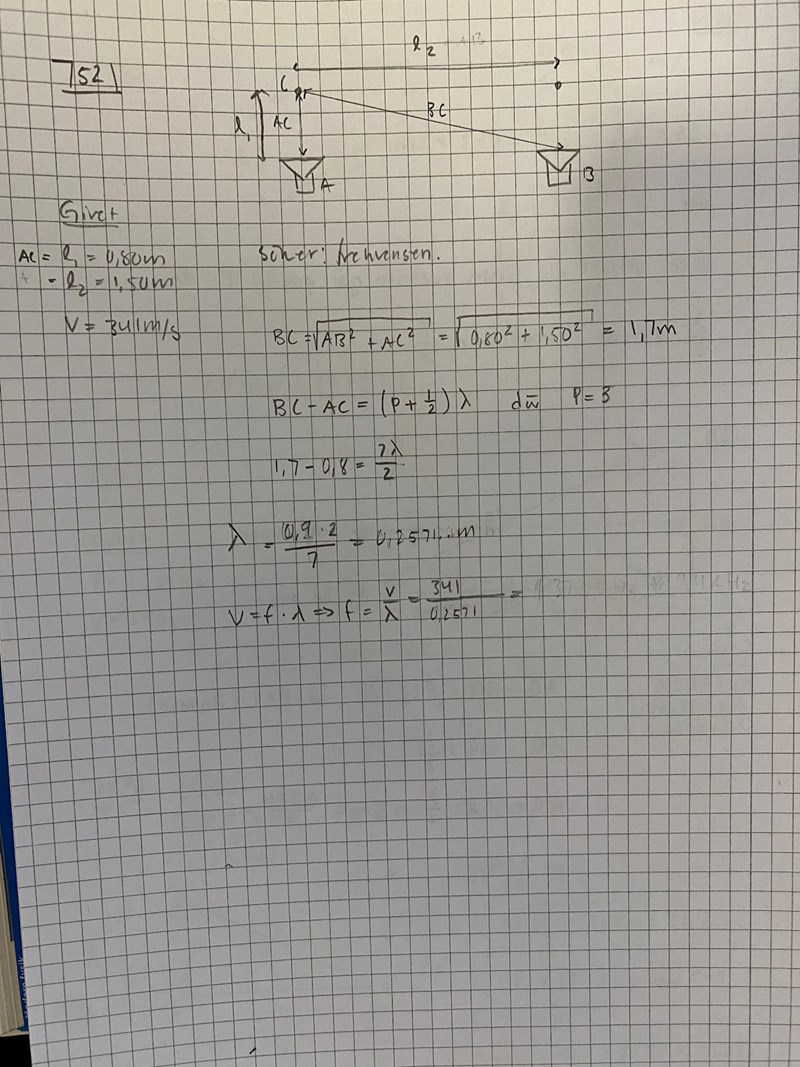 752
l₂
C
l₁
AC
BC
A
B
Givet
AC = l₁ = 0,80m
- l₂ = 1,50m
V = 341m/s
Söker: frekvensen.
BC = √AB² + AC² = √0,80² + 1,50² = 1,7m
BC - AC = (P + 1/2) λ där P = 3
1,7 - 0,8 = 7λ/2
λ = 0,9 · 2/7 = 0,2571.. m
V = f · λ ⇒ f = v/λ = 341/0,2571 =